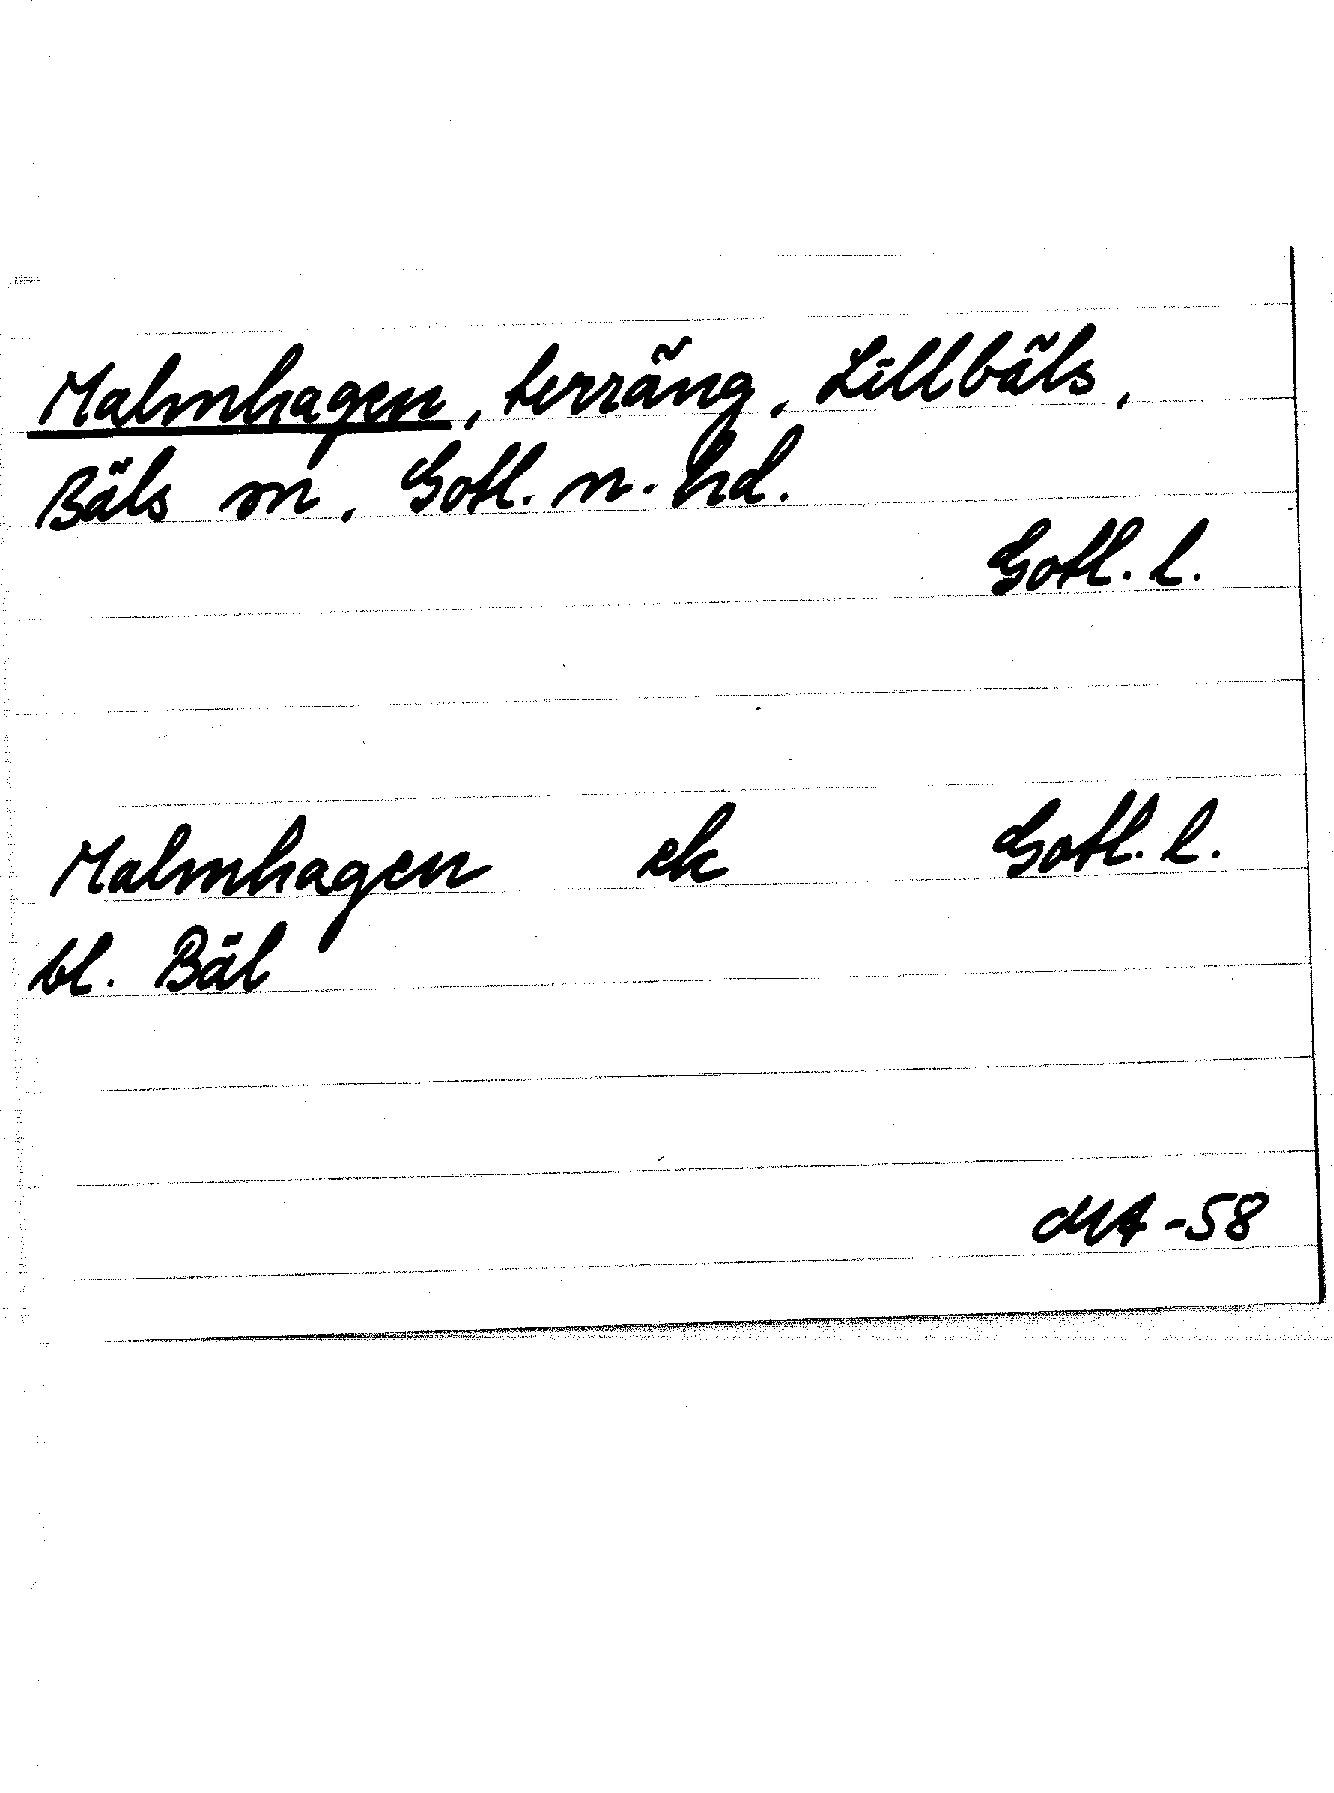 Malmhagen, terräng, Lillbäls,
Bäls sn, Gotl. n. hd.
Gotl. l.
Malmhagen ek Gotl. l.
bl. Bäl
MA -58